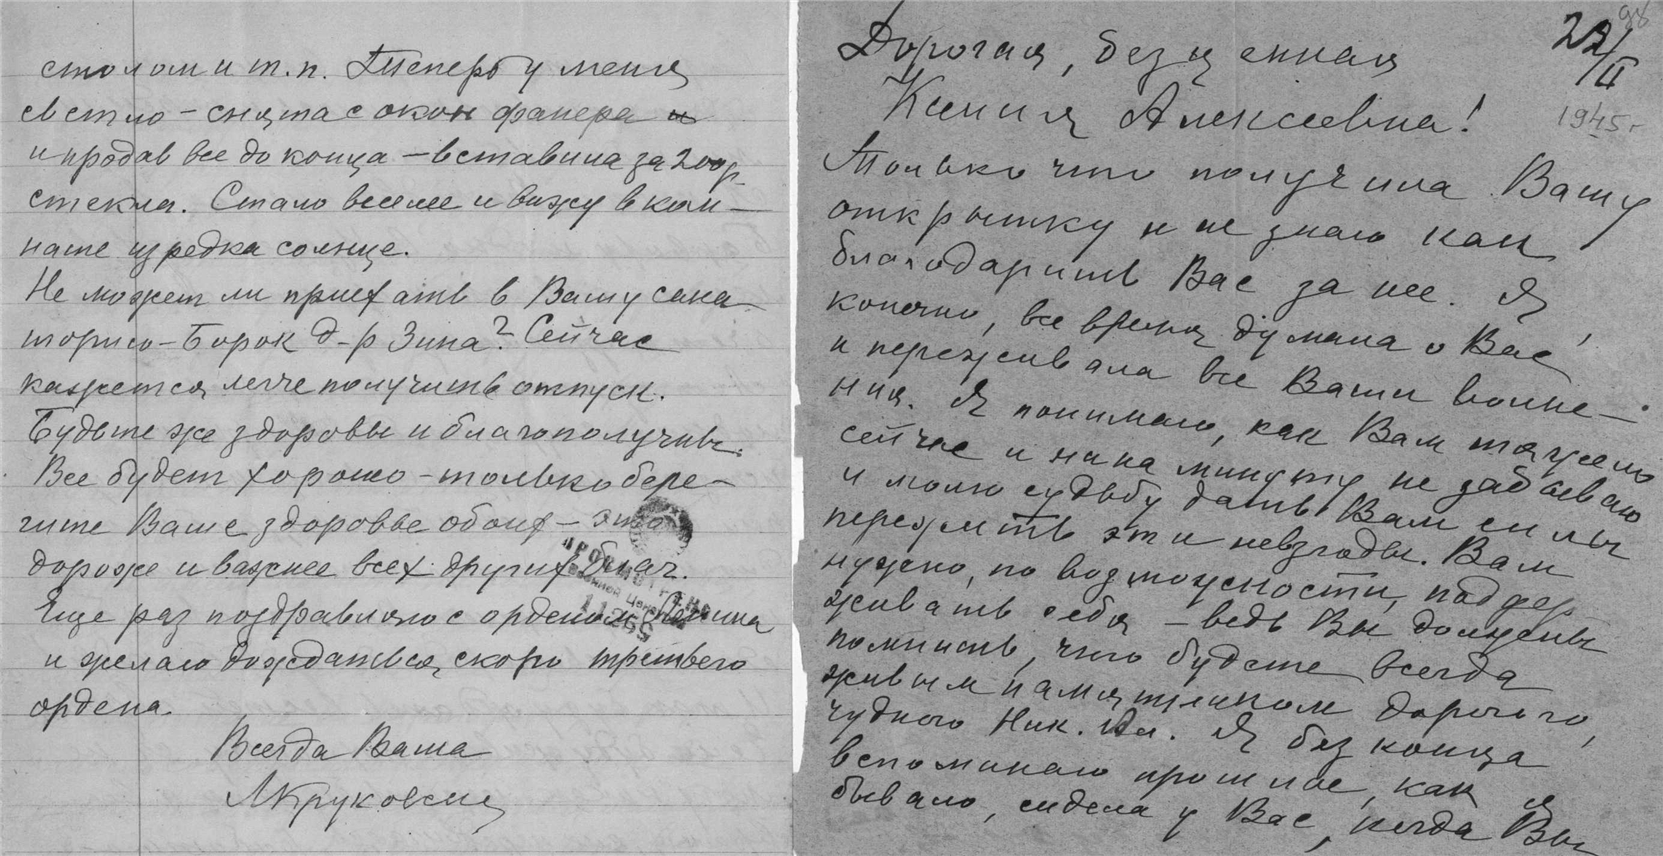 столом и т.п. Теперь у меня
светло – снята с окон фанера и
и продав все до конца – вставила за 200р.
стекла. Стало веселее и вижу в ком–
нате изредка солнце.
Не может ли приехать в Вашу сана–
торию – Борок д-р Зина? Сейчас
кажется легче получить отпуск.
Будьте же здоровы и благополучны.
Все будет хорошо – только бере–
гите Ваше здоровье обоих – это
дороже и важнее всех других благ.
Еще раз поздравляю с орденом Ленина
и желаю дождаться скоро третьего
ордена.
Всегда Ваша
АКруковская
98
22/II
1945 г
Дорогая, бесценная
Ксения Алексеевна!
Только что получила Вашу
открытку и не знаю как
благодарить Вас за нее. Я,
конечно, все время думала о Вас
и переживала все Ваши волне–
ния. Я понимаю, как Вам тяжело
сейчас и ни на минуту не забываю
и молю судьбу дать Вам силы
пережить эти невзгоды. Вам
нужно, по возможности, поддер
живать себя – ведь Вы должны
помнить, что будете всегда
живым памятником дорогого,
чудного Ник. Ал. Я без конца
вспоминаю прошлое, как я
бывало, сидела у Вас, когда Вы